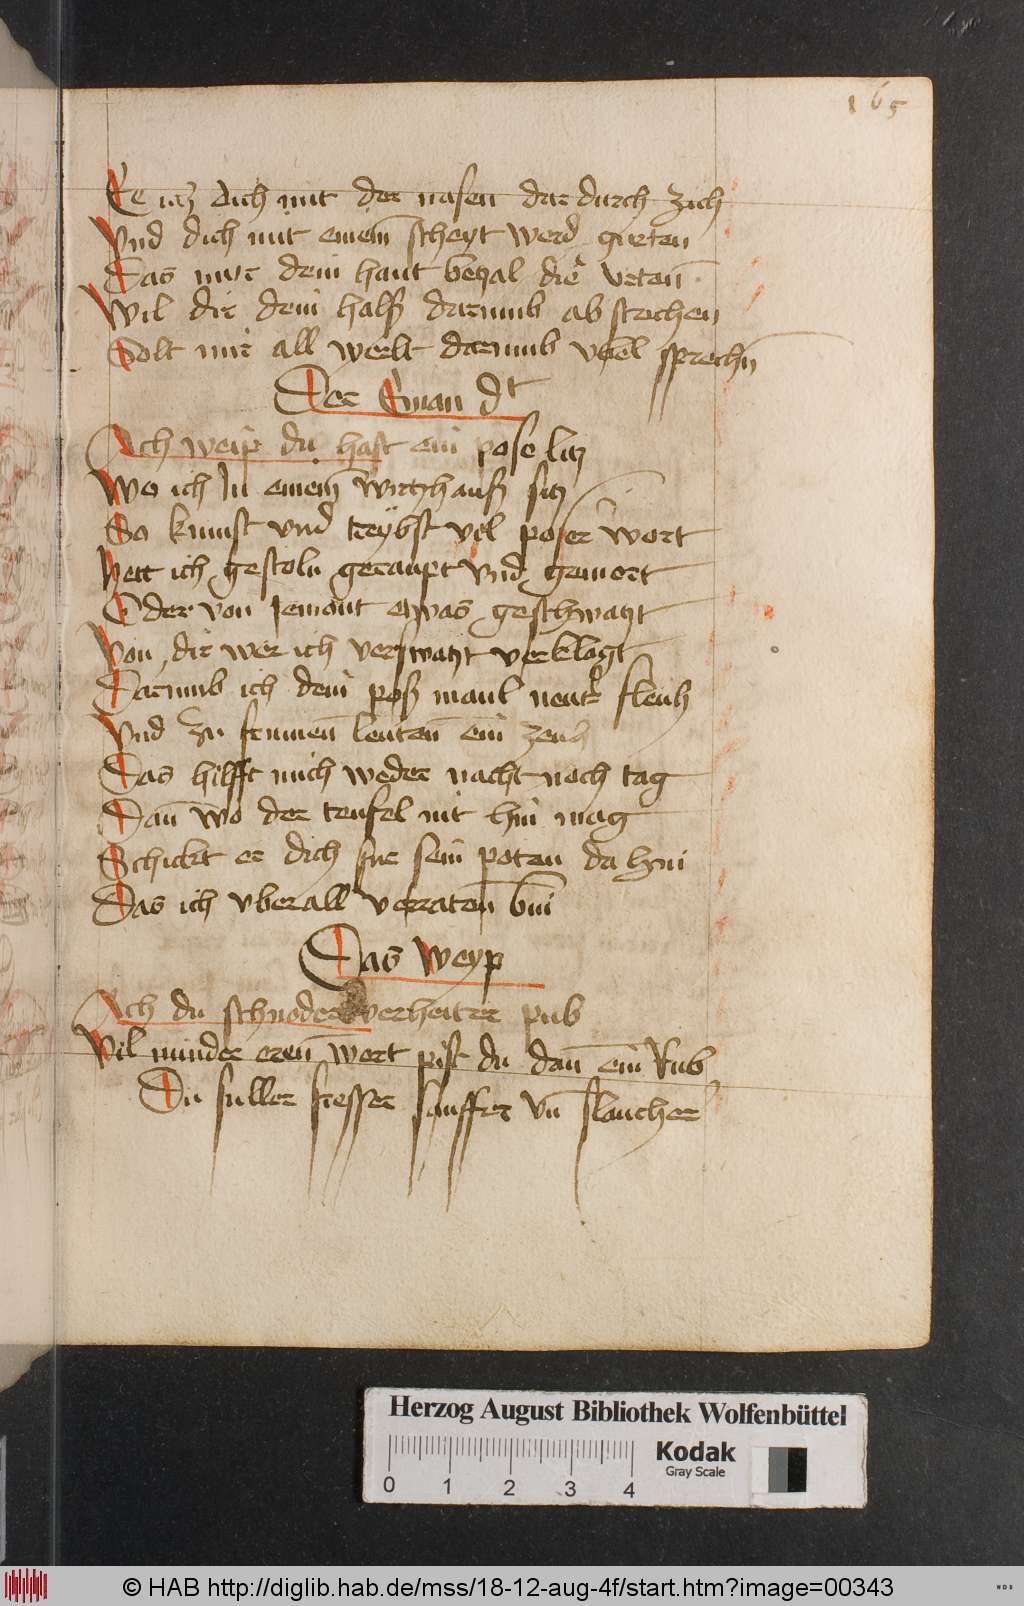 165
Ee ich dich mit der nasen dar durch zich
Vnd dich mit einem scheyt werd gurten
Das mir dein haut bezal die vrten
Wil dir dein halß darumb ab stechen
Solt mir all werlt darumb vbel sprechn
Der Eman dt
Ach weip du hast ein pose litz
Wo ich In einem wirtzhauß sitz
So kumst vnd treybst vil poser wort
Hett ich gestoln geraupt vnd gemort
Oder von Jemant etwas geschwatzt
Von dir wer ich verswatzt verklagt
Darumb ich dein poß maul fleuh
Vnd zu frumen leuten ein zeuh
Das hilfft mich weder nacht noch tag
Dan wo der teufel nit hin mag
Schickt er dich fur sein poten da hin
Das ich vberall verraten bin
Das Weyp
Ach du schnoder verheiter pub
Vil minder eren wert pist du dan ein Rub
Du fuller fresser sauffer vn slaucher
Herzog August Bibliothek Wolfenbüttel
Kodak
Gray Scale
0 1 2 3 4
© HAB http://diglib.hab.de/mss/18-12-aug-4f/start.htm?image=00343